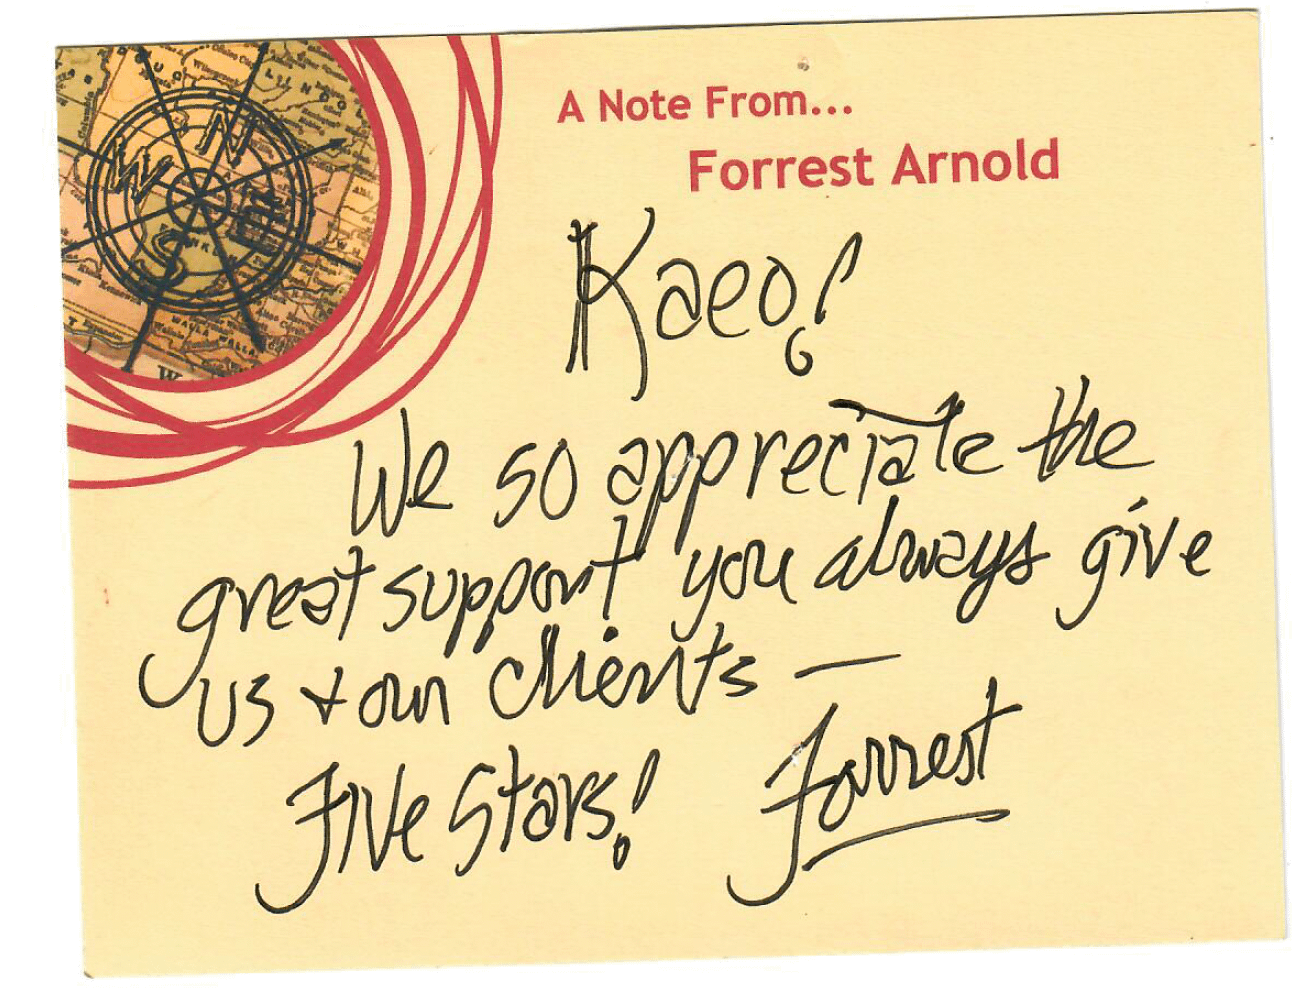 A Note From...
Forrest Arnold
Kaeo!
We so appreciate the
great support you always give
us + our clients —
Five Stars!
Forrest
N
W
E
S
WALLA WALLA
W